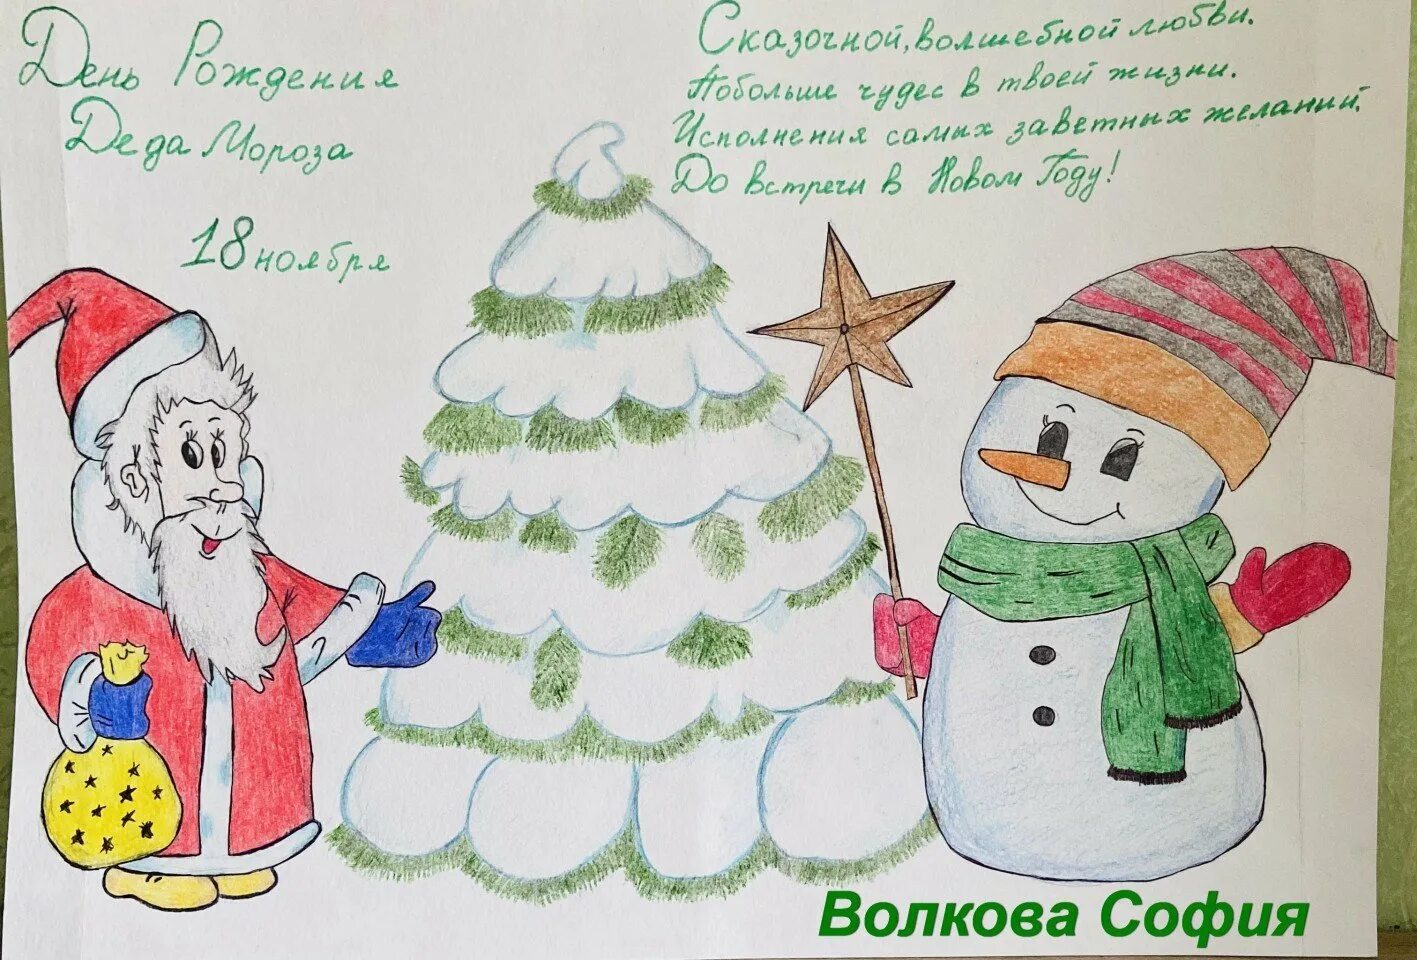 День Рождения
Деда Мороза
18 ноября
Сказочной, волшебной любви.
Побольше чудес в твоей жизни.
Исполнения самых заветных желаний,
До встречи в Новом Году!
Волкова София